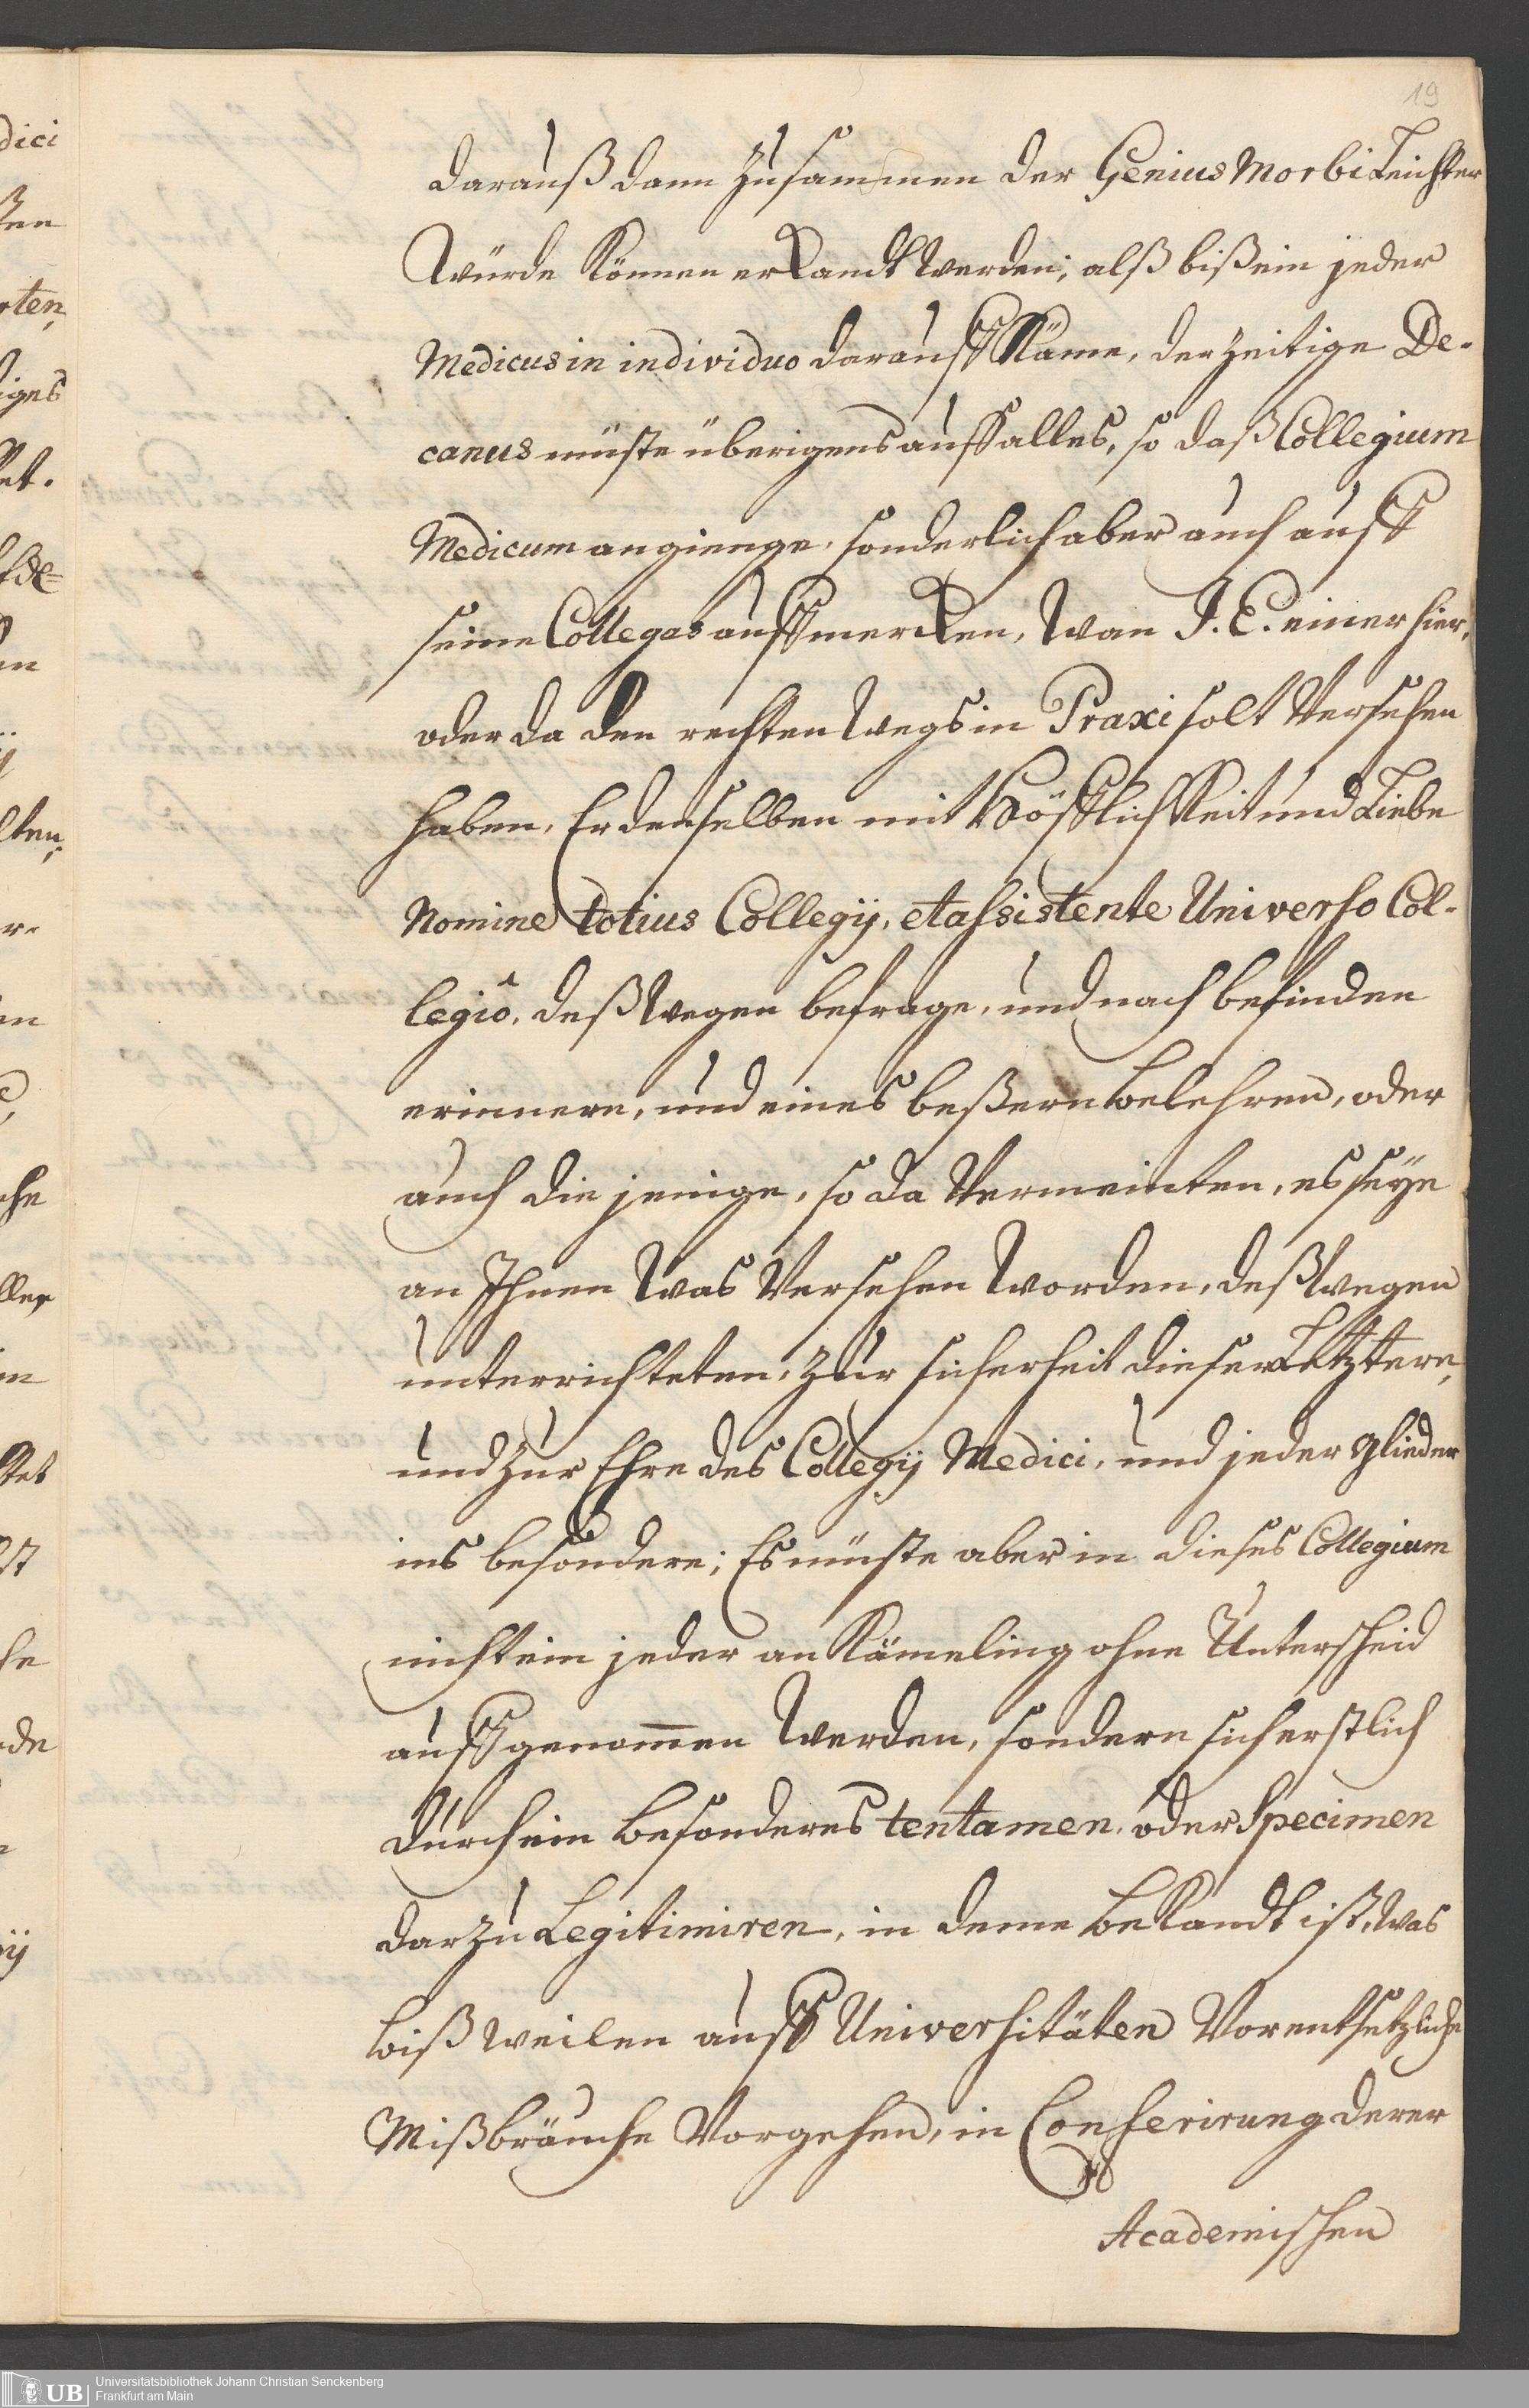 19
darauß dann zusammen der Genius Morbi Leichter
würde können erkandt werden; alß biß ein jeder
Medicus in individuo darauff käme, der zeitige De-
canus müste überigens auff alles, so daß Collegium
Medicum angienge, sonderlich aber auch auff
seine Collegas auffmercken, wan J. E. einer hier,
oder da den rechten Wegs in Praxi solt versehen
haben, Er denselben mit Höfflichkeit und Liebe
Nomine totius Collegij, et assistente Universo Col-
legiô, deßwegen befrage, und nach befinden
erinnere, und eines beßern belehren, oder
auch die jenige, so da vermeinten, es seye
an Ihnen was versehen worden, deßwegen
unterrichteten, zur sicherheit dieser Letztern,
und zur Ehre des Collegij Medici, und jeder glieder
ins besondere; Es müste aber in dieses Collegium
nicht ein jeder ankömeling ohne Unterscheid
auffgenom̄en werden, sondern sich erstlich
durch ein besonderes tentamen, oder Specimen
darzu Legitimiren, in deme bekandt ist, was
bißweilen auff Universitäten vor entsetzliche
Mißbräuche vorgehen, in Conferirung derer
Academischen
UB
Universitätsbibliothek Johann Christian Senckenberg
Frankfurt am Main